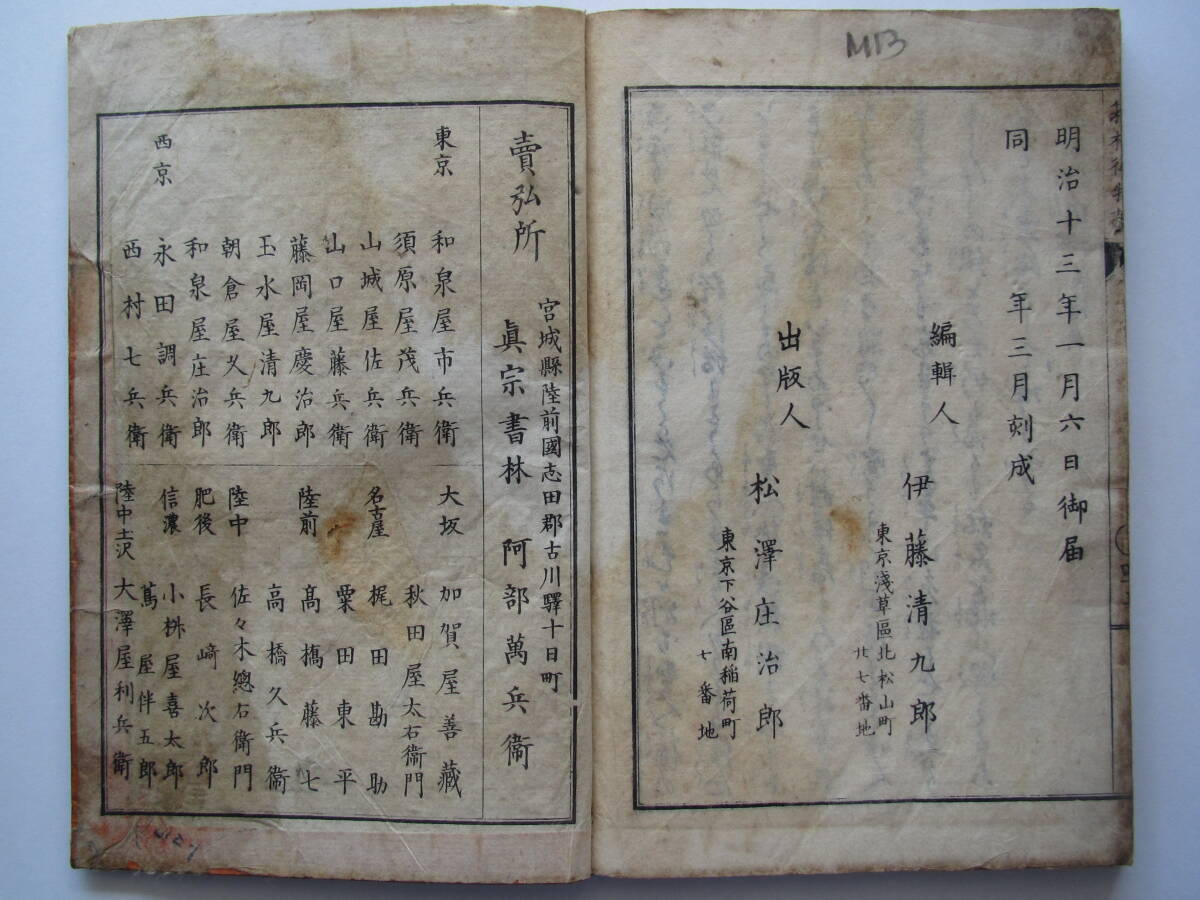 M13
明治十三年一月六日御届
同年三月刻成
編輯人
伊藤清九郎
東京淺草區北松山町
廿七番地
出版人
松澤庄治郎
東京下谷區南稲荷町
七番地
宮城縣陸前國志田郡古川驛十日町
賣弘所 眞宗書林 阿部萬兵衞
東京 和泉屋市兵衛
須原屋茂兵衛
山城屋佐兵衛
山口屋藤兵衛
藤岡屋慶治郎
玉水屋清九郎
朝倉屋久兵衛
和泉屋庄治郎
西京 永田調兵衛
西村七兵衛
大坂 加賀屋善藏
秋田屋太右衞門
名古屋 梶田勘助
栗田東平
陸前 高橋藤七
高橋久兵衞
陸中 佐々木總右衛門
肥後 長崎次郎
信濃 小桝屋喜太郎
蔦屋伴五郎
陸中土沢 大澤屋利兵衛